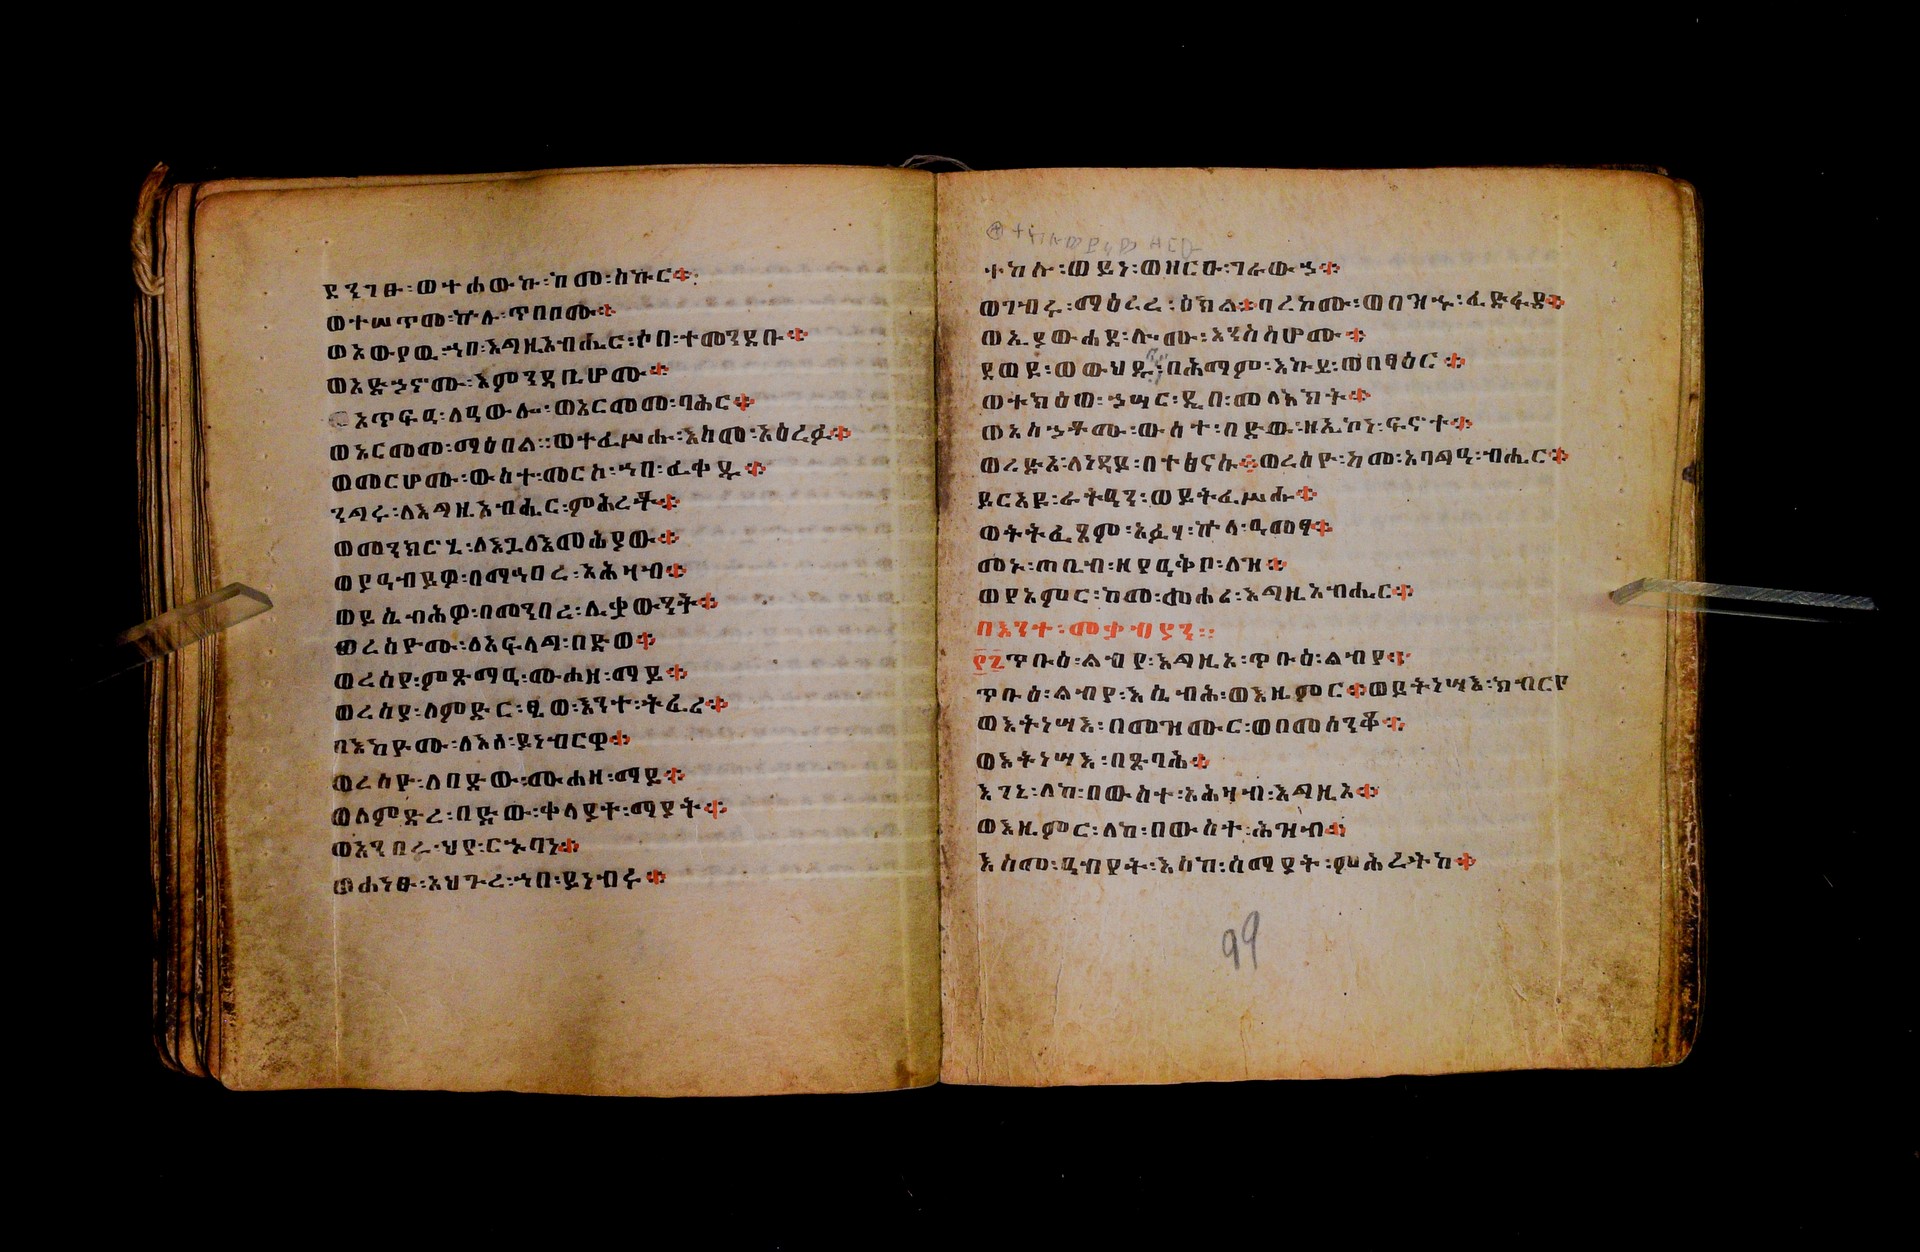 ደንገፁ፡ወተሐውኩ፡ከመ፡ስኩር፨
ወተሠጥመ፡ኵሉ፡ጥበቦሙ፨
ወአውየዉ፡ኀበ፡እግዚአብሔር፡ሶበ፡ተመንደቡ፨
ወአድኃኖሙ፡እምንዳቤሆሙ፨
አጥፍዒ፡ለዓውሎ፡ወአርመመ፡ባሕር፨
ወአርመመ፡ማዕበል፡፡ወተፈሥሑ፡እስመ፡አዕረፉ፨
ወመርሆሙ፡ውስተ፡መርሶ፡ኀበ፡ፈቀዱ፨
ንግሩ፡ለእግዚአብሔር፡ምሕረቶ፨
ወመንክሮሂ፡ለእጓለእመሕያው፨
ወያዓብይዎ፡በማኀበረ፡አሕዛብ፨
ወይሴብሕዎ፡በመንበረ፡ሊቃውንት፨
ወረሰዮሙ፡ለአፍላግ፡በድወ፨
ወረሰየ፡ምጽማዒ፡ሙሐዘ፡ማይ፨
ወረሰያ፡ለምድር፡ፄወ፡እንተ፡ትፈሪ፨
በእከዮሙ፡ለእለ፡ይነብርዋ፨
ወረሰዮ፡ለበድው፡ሙሐዘ፡ማይ፨
ወለምድረ፡በድው፡ቀላያት፡ማያት፨
ወአንበረ፡ህየ፡ርኁባነ፨
ወሐነፁ፡አህጉረ፡ኀበ፡ይነብሩ፨
ተከሉ፡ወይነ፡ወዘርዑ፡ገራውኃ፨
ወገብሩ፡ማዕረረ፡ዕክል፨ባረኮሙ፡ወበዝኁ፡ፈድፋደ፨
ወኢያውሐደ፡ሎሙ፡እንስሳሆሙ፨
ደወዩ፡ወውህዱ፡በሕማም፡እኩይ፡ወበፃዕር፨
ወተክዕወ፡ኃሣር፡ዲበ፡መላእክት፨
ወአስኃቶሙ፡ውስተ፡በድው፡ዘኢኮነ፡ፍኖተ፨
ወረድኦ፡ለነዳይ፡በተፅናሱ፨ወረሰዮ፡ከመ፡አባግዓ፡ብሔር፨
ይርአዩ፡ራትዓን፡ወይትፈሥሑ፨
ወትትፈፀም፡አፈሃ፡ኵላ፡ዓመፃ፨
መኑ፡ጠቢብ፡ዘያዓቅቦ፡ለዝ፨
ወየአምር፡ከመ፡መሐሪ፡እግዚአብሔር፨
በእንተ፡መቃብያን፡፡
፻፯ጥቡዕ፡ልብየ፡እግዚኦ፡ጥቡዕ፡ልብየ፨
ጥቡዕ፡ልብየ፡እሴብሕ፡ወእዜምር፨ወይትነሣእ፡ክብርየ
ወእትነሣእ፡በመዝሙር፡ወበመሰንቆ፨
ወእትነሣእ፡በጽባሕ፨
እገኒ፡ለከ፡በውስተ፡አሕዛብ፡እግዚኦ፨
ወእዜምር፡ለከ፡በውስተ፡ሕዝብ፨
እስመ፡ዓብየት፡እስከ፡ሰማያት፡ምሕረትከ፨
99